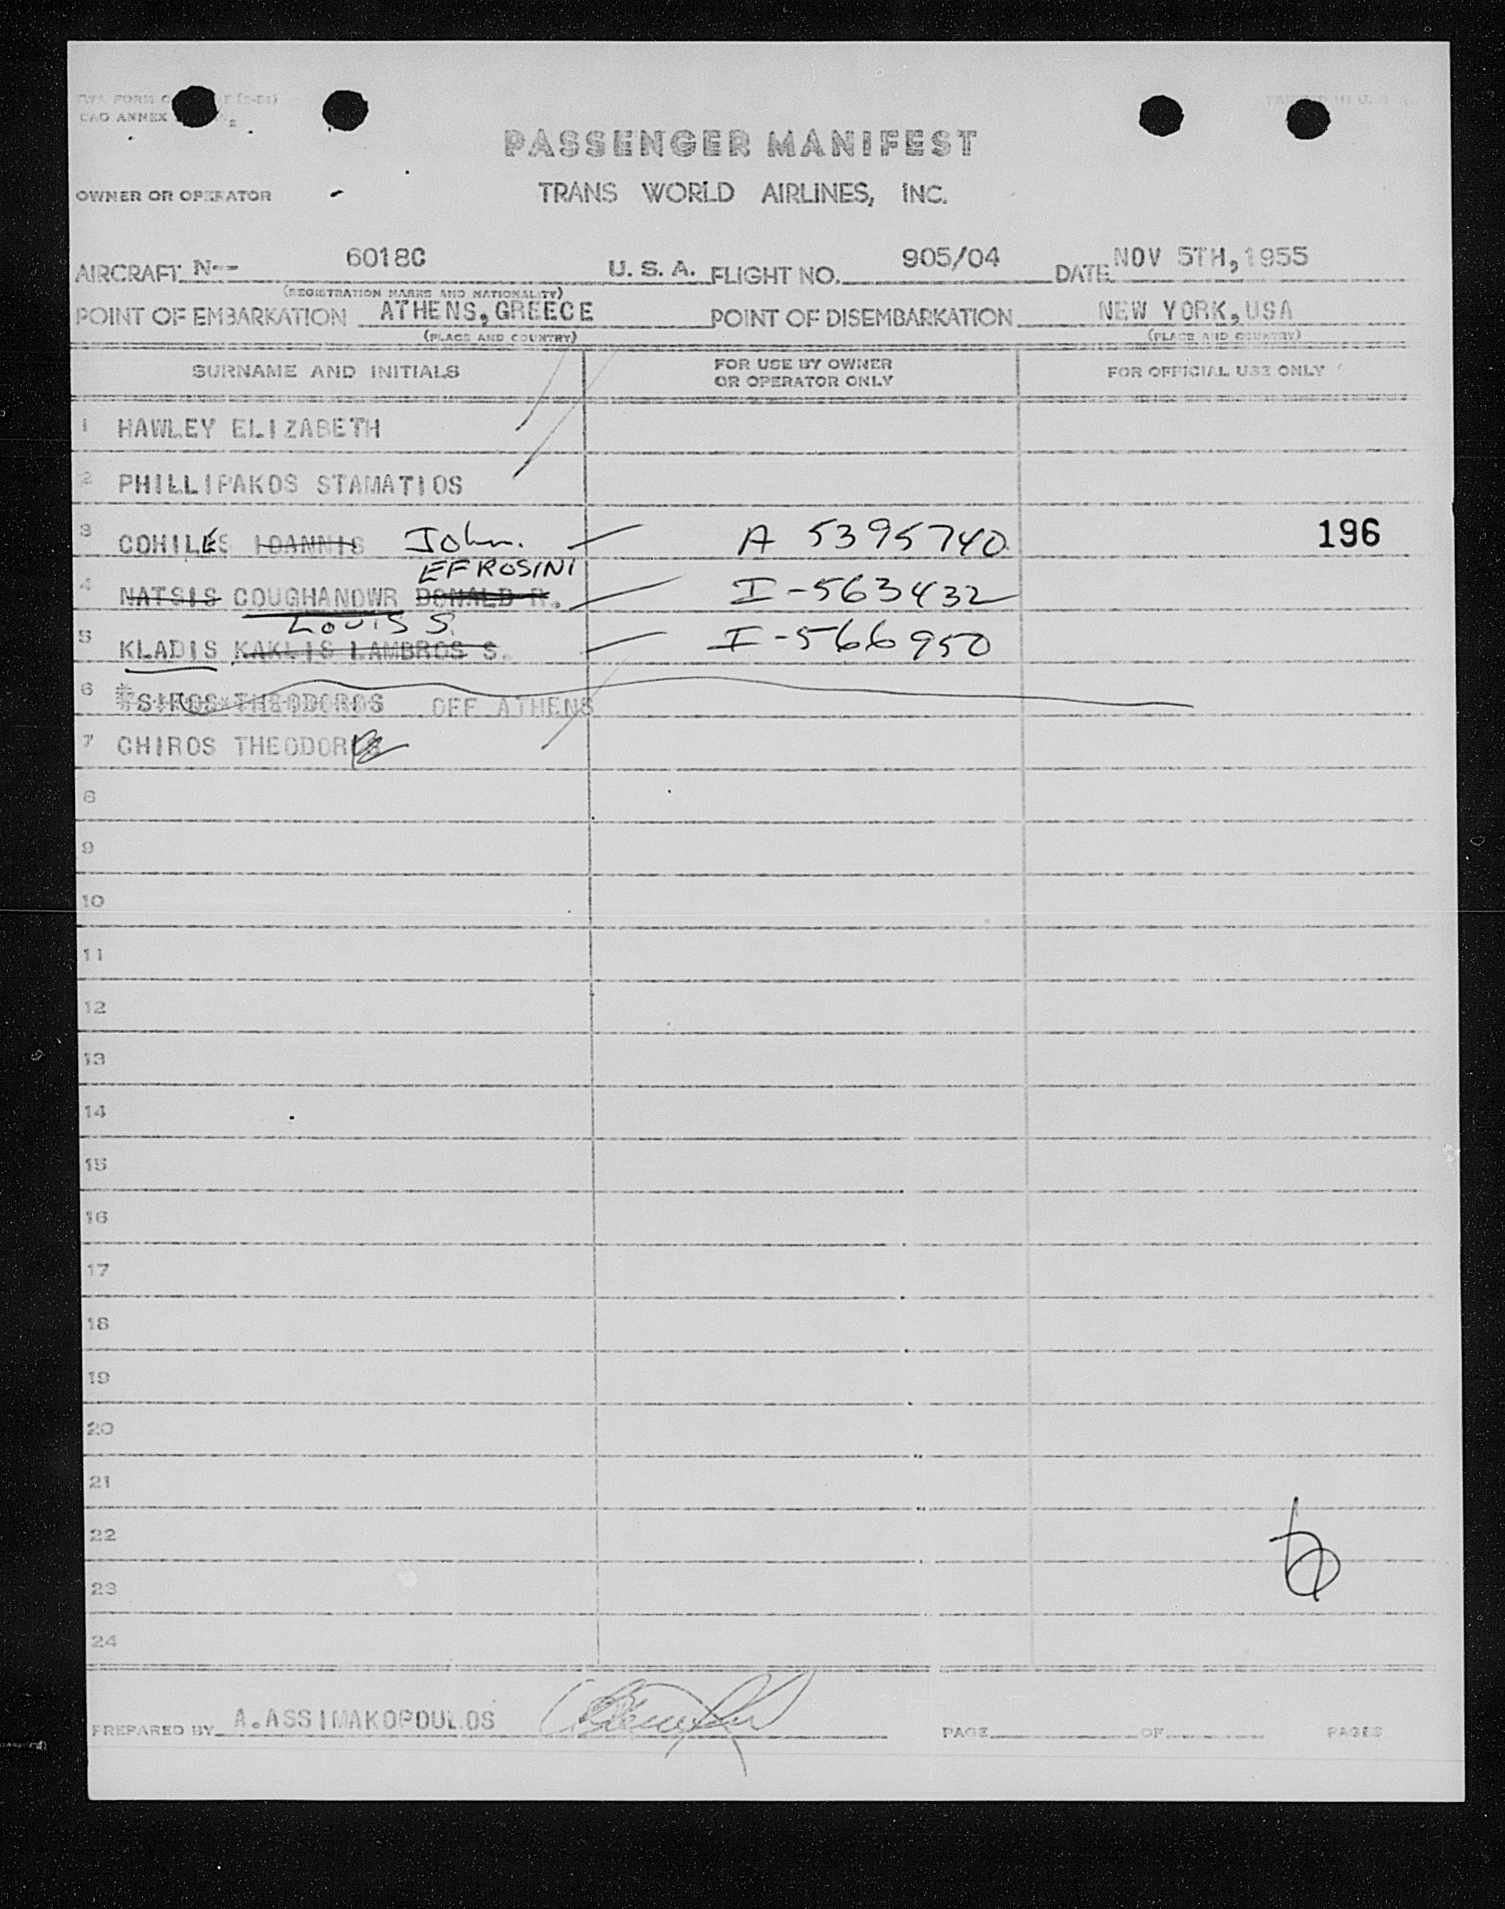 CAO ANNEX
PASSENGER MANIFEST
OWNER OR OPERATOR TRANS WORLD AIRLINES, INC.
AIRCRAFT N-- 6018C U. S. A. FLIGHT NO. 905/04 DATE NOV 5TH,1955
(REGISTRATION MARKS AND NATIONALITY)
POINT OF EMBARKATION ATHENS,GREECE POINT OF DISEMBARKATION NEW YORK,USA
(PLACE AND COUNTRY) (PLACE AND COUNTRY)
SURNAME AND INITIALS FOR USE BY OWNER OR OPERATOR ONLY FOR OFFICIAL USE ONLY
1 HAWLEY ELIZABETH
2 PHILLIPAKOS STAMATIOS
3 COHILES IOANNIS John. A 5395740 196
EFROSINI
4 NATSIS COUGHANOWR DONALD R. I-563432
LOUIS S.
5 KLADIS KAKLIS LAMBROS S. I-566950
6 THEODOROS OFF ATHENS
7 CHIROS THEODOR
8
9
10
11
12
13
14
15
16
17
18
19
20
21
22
23
24
PREPARED BY A.ASSIMAKOPOULOS PAGE OF PAGES